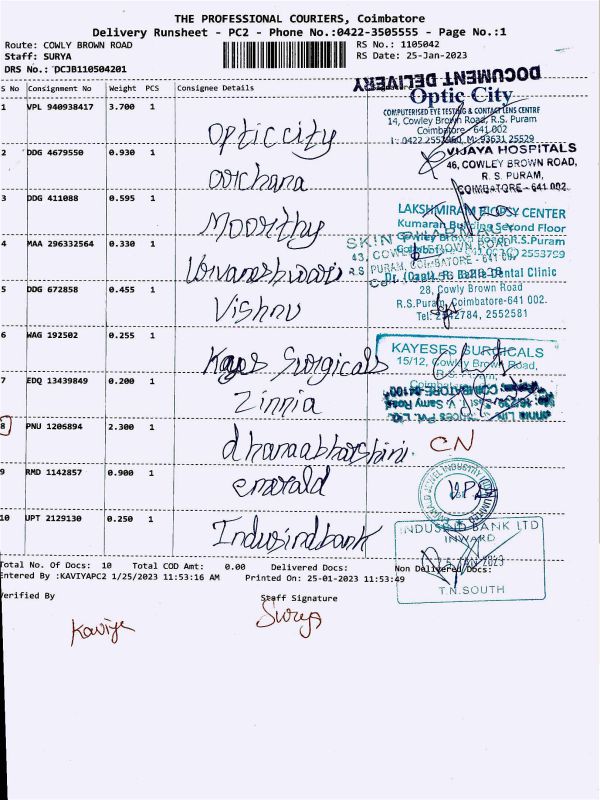 THE PROFESSIONAL COURIERS, Coimbatore
Delivery Runsheet - PC2 - Phone No.:0422-3505555 - Page No.:1
Route: COWLY BROWN ROAD
Staff: SURYA
DRS No.: DCJB110504201
RS No.: 1105042
RS Date: 25-Jan-2023
S No Consignment No Weight PCS Consignee Details
DOCUMENT DELIVERY
1 VPL 940938417 3.700 1 Opticcity
Optic City
COMPUTERISED EYE TESTING & CONTACT LENS CENTRE
14, Cowley Brown Road, R.S. Puram
Coimbatore - 641 002
2 DDG 4679550 0.930 1 archana
VIJAYA HOSPITALS
46, COWLEY BROWN ROAD,
R. S. PURAM,
COIMBATORE - 641 002.
3 DDG 411088 0.595 1 Moorthy
LAKSHMIRAM BIOPSY CENTER
Kumaran Building Second Floor
4 MAA 296332564 0.330 1
5 DDG 672858 0.455 1 Vishnu
Dental Clinic
28, Cowly Brown Road
R.S.Puram, Coimbatore-641 002.
Tel: 2542784, 2552581
6 WAG 192502 0.255 1 Kayes Surgicals
KAYESES SURGICALS
15/12, Cowly Brown Road,
R.S. Puram,
7 EDQ 13439849 0.200 1 Zinnia
8 PNU 1206894 2.300 1 dhanaabharshini CN
9 RMD 1142857 0.900 1 emerald
10 UPT 2129130 0.250 1 Indusindbank
INDUSIND BANK LTD
INWARD
25 JAN 2023
T.N.SOUTH
Total No. Of Docs: 10 Total COD Amt: 0.00 Delivered Docs: Non Delivered Docs:
Entered By :KAVIYAPC2 1/25/2023 11:53:16 AM Printed On: 25-01-2023 11:53:49
Verified By Staff Signature
Kaviya Surya